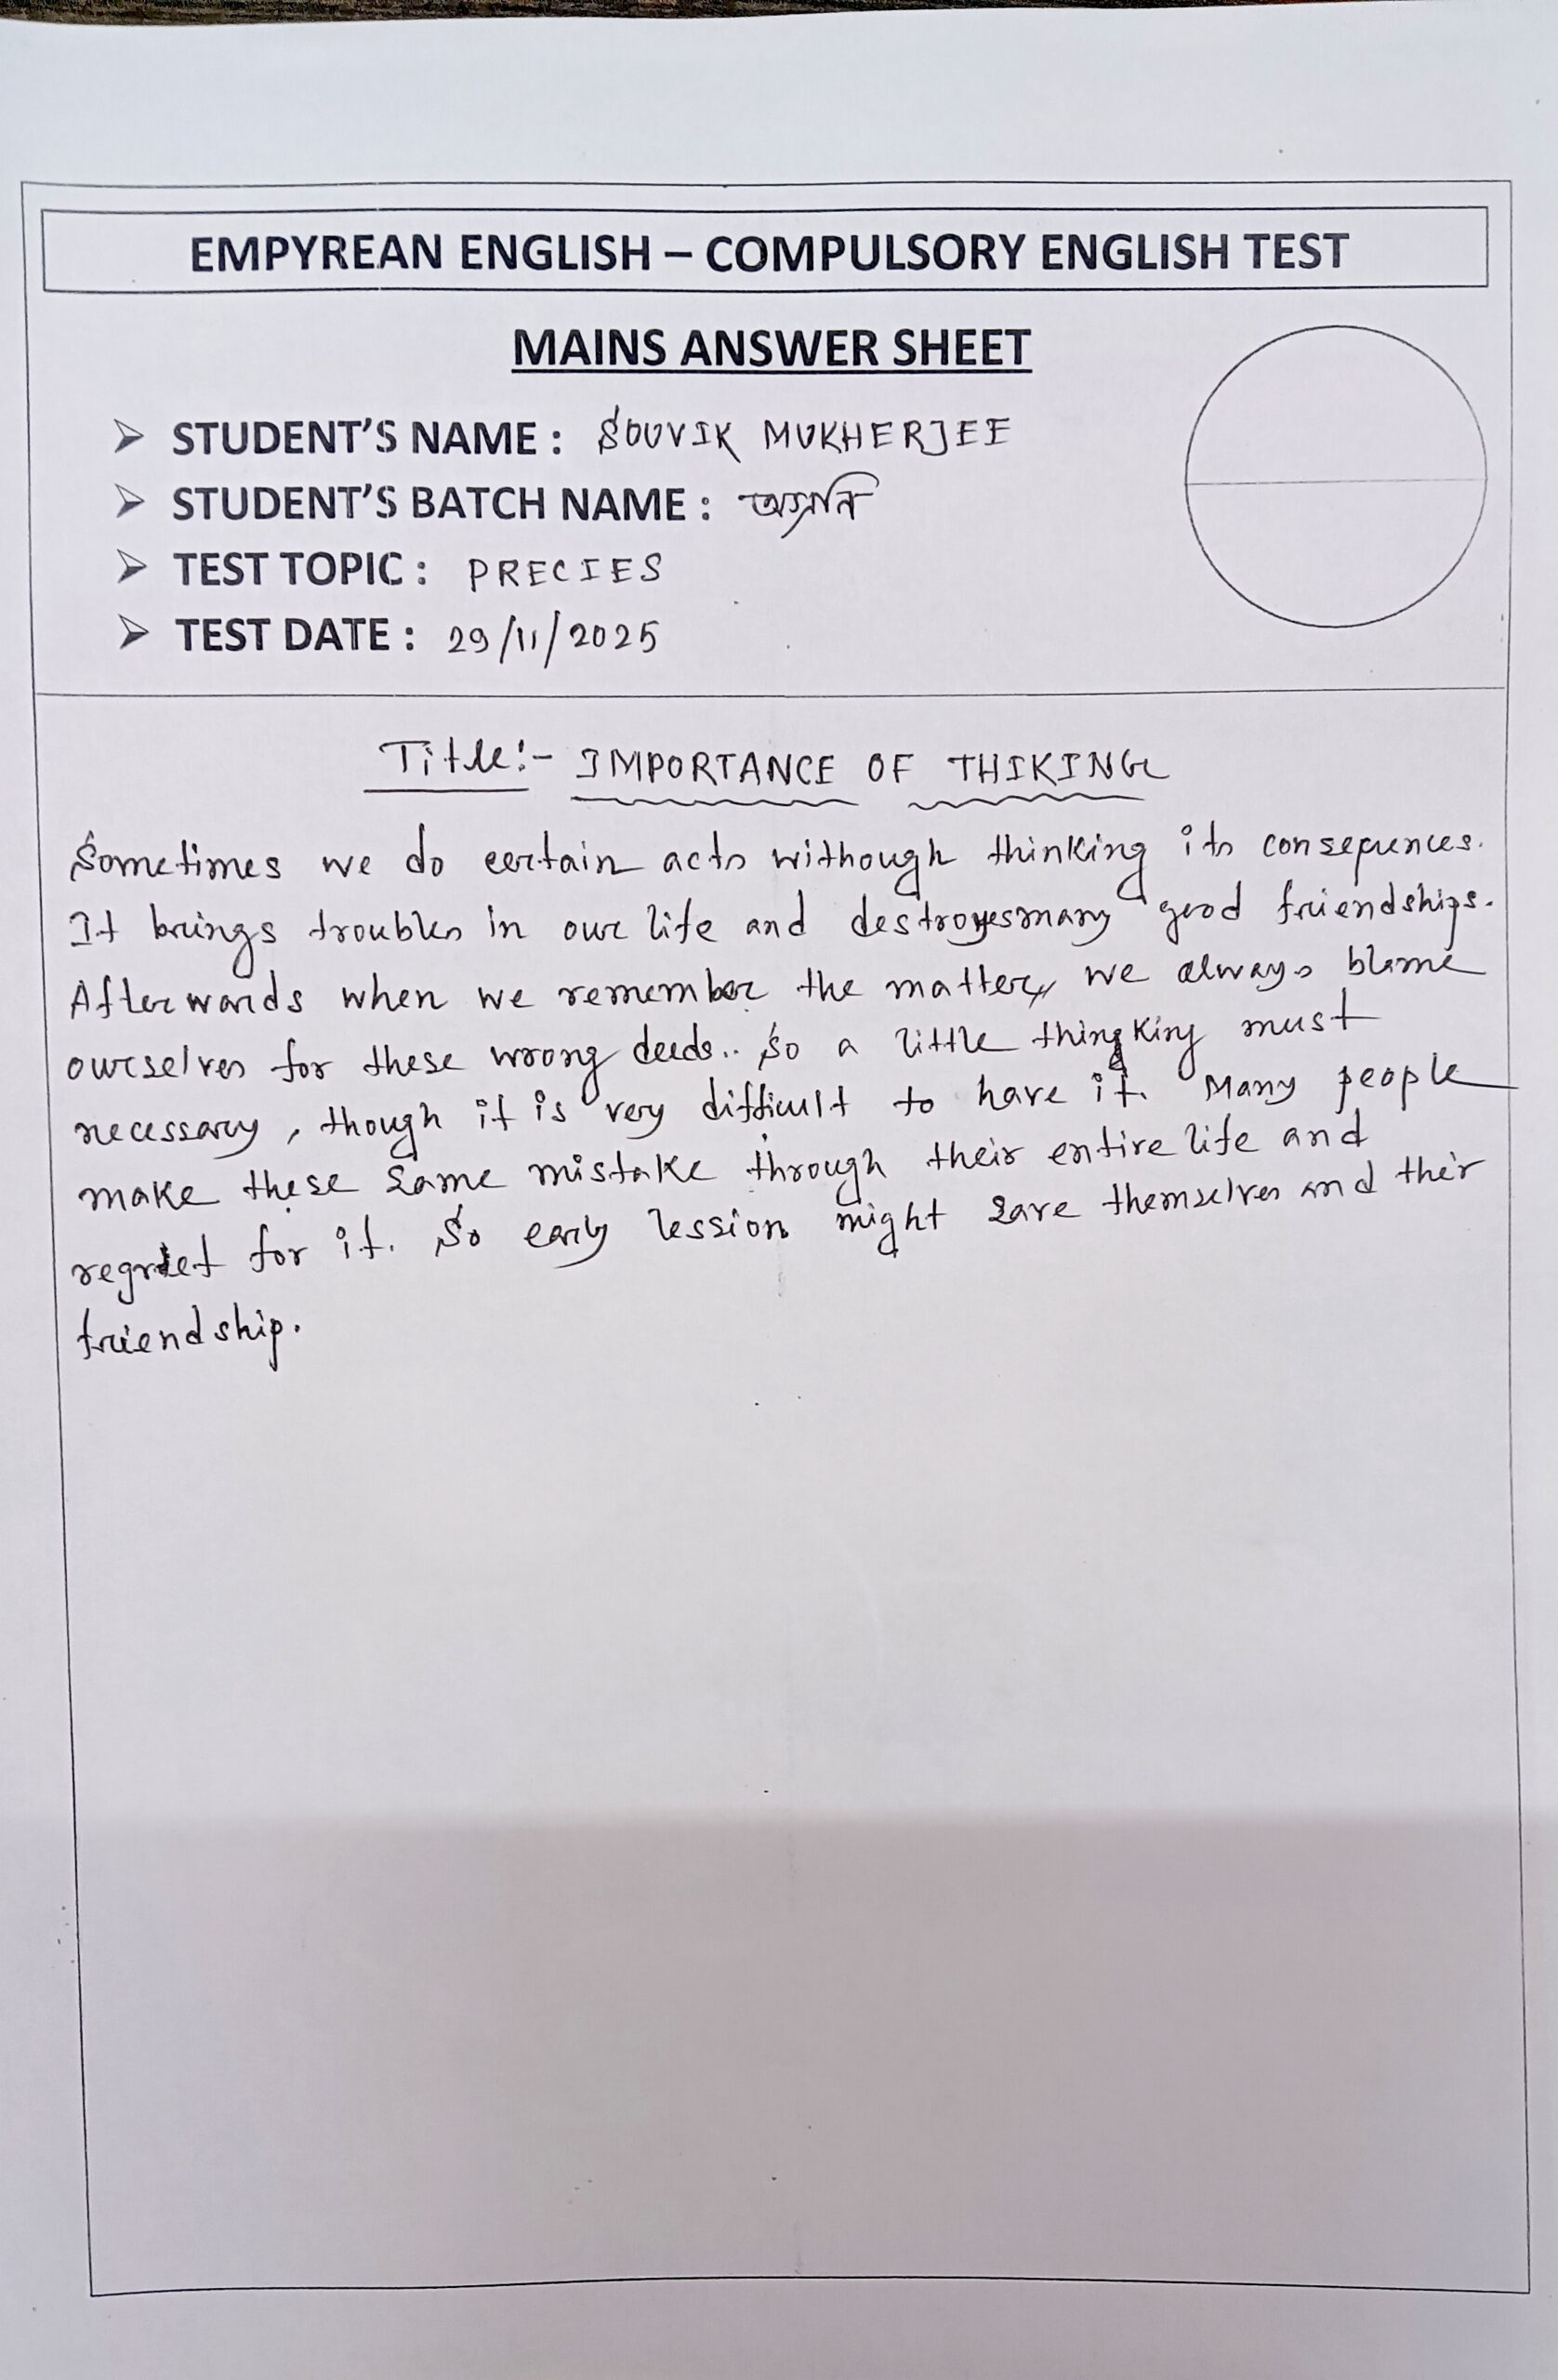 EMPYREAN ENGLISH – COMPULSORY ENGLISH TEST
MAINS ANSWER SHEET
➢ STUDENT'S NAME : SOUVIK MUKHERJEE
➢ STUDENT'S BATCH NAME :
➢ TEST TOPIC : PRECIES
➢ TEST DATE : 29/11/2025
Title:- IMPORTANCE OF THIKING
Sometimes we do certain acts withough thinking its consequences.
It brings troubles in our life and destroyes many good friendships.
Afterwards when we remember the matter, we always blame
ourselves for these wrong deeds.. So a little thingking must
necessary, though it is very difficult to have it. Many people
make these same mistake through their entire life and
regret for it. So early lession might save themselves and their
friendship.